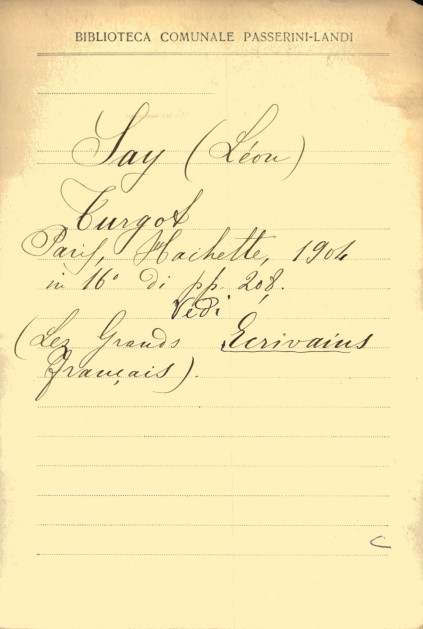 BIBLIOTECA COMUNALE PASSERINI-LANDI
Say (Léon)
Turgot
Paris, Hachette, 1904
in 16° di pp. 208.
Vedi
(Les Grands Ecrivains
français).
C